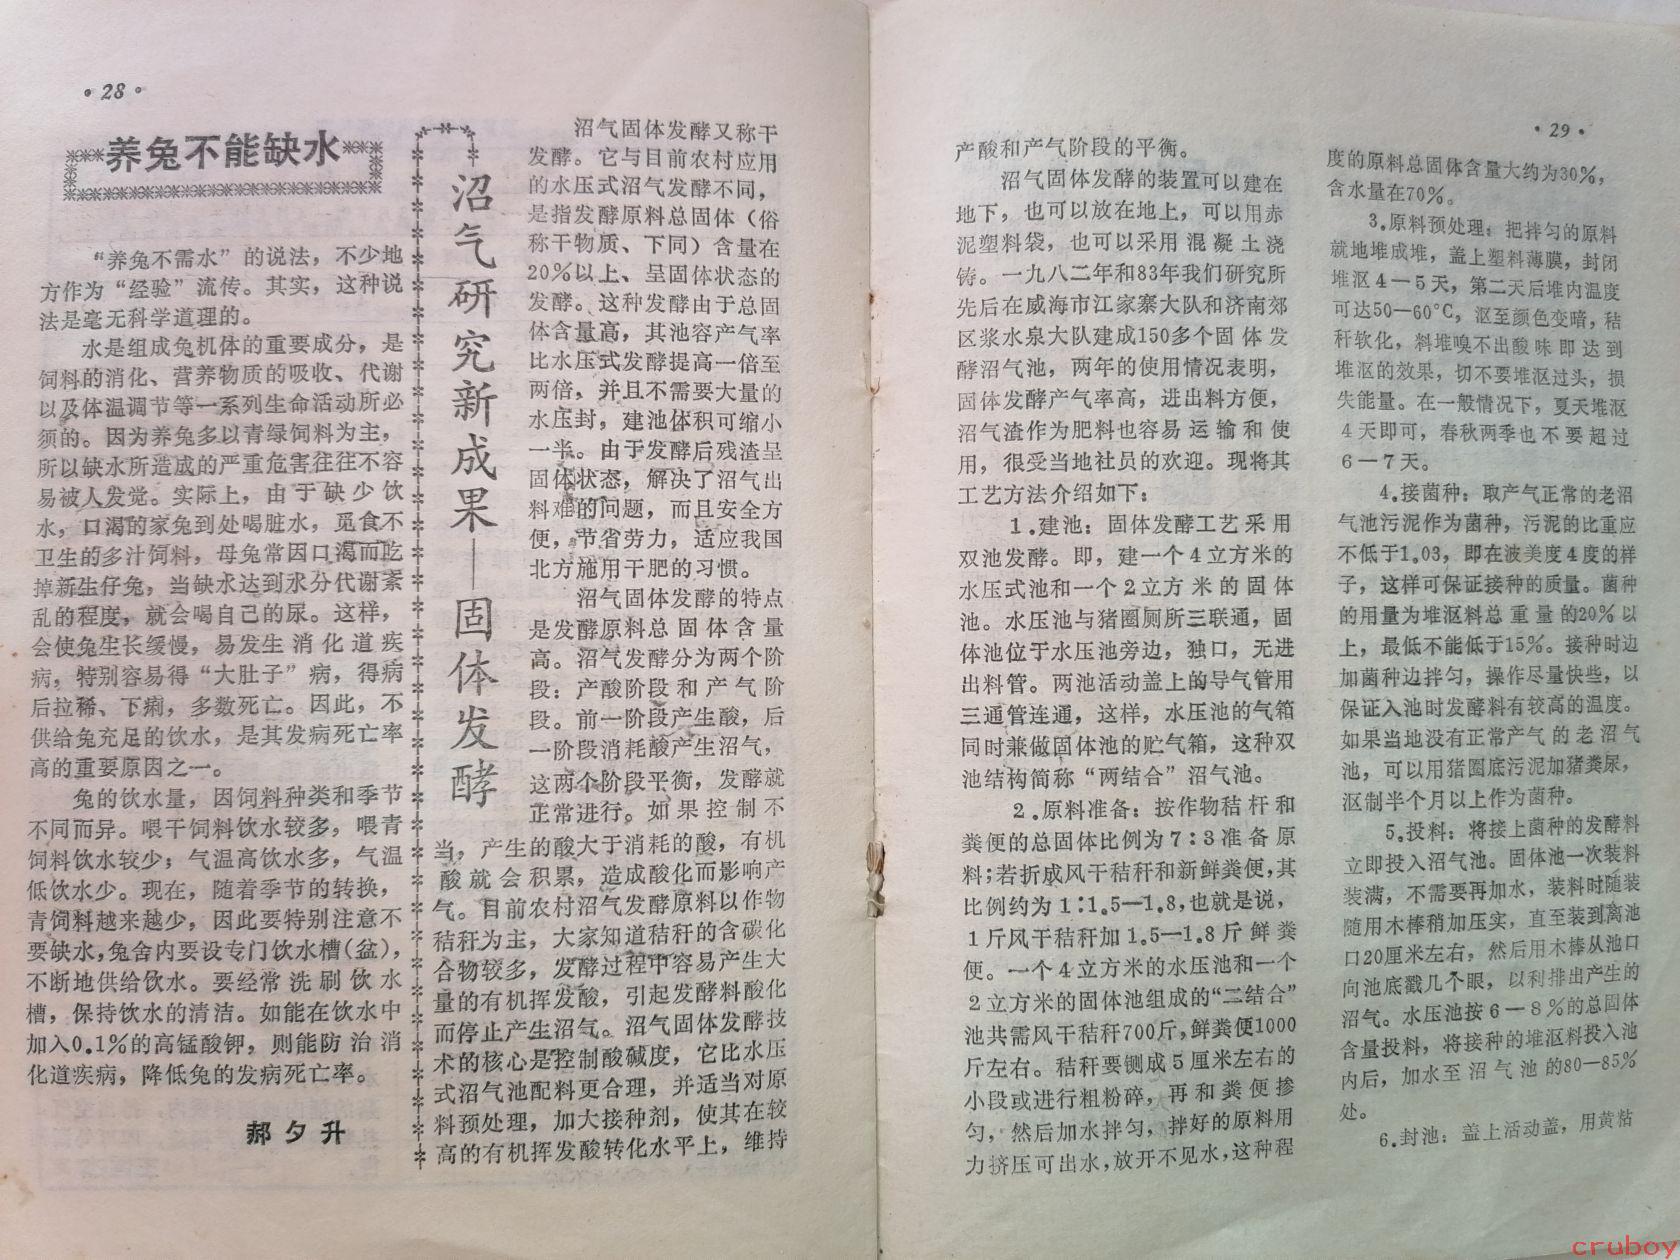 ·28·
养兔不能缺水
“养兔不需水”的说法，不少地
方作为“经验”流传。其实，这种说
法是毫无科学道理的。
水是组成兔机体的重要成分，是
饲料的消化、营养物质的吸收、代谢
以及体温调节等一系列生命活动所必
须的。因为养兔多以青绿饲料为主，
所以缺水所造成的严重危害往往不容
易被人发觉。实际上，由于缺少饮
水，口渴的家兔到处喝脏水，觅食不
卫生的多汁饲料，母兔常因口渴而吃
掉新生仔兔，当缺水达到水分代谢紊
乱的程度，就会喝自己的尿。这样，
会使兔生长缓慢，易发生消化道疾
病，特别容易得“大肚子”病，得病
后拉稀、下痢，多数死亡。因此，不
供给兔充足的饮水，是其发病死亡率
高的重要原因之一。
兔的饮水量，因饲料种类和季节
不同而异。喂干饲料饮水较多，喂青
饲料饮水较少；气温高饮水多，气温
低饮水少。现在，随着季节的转换，
青饲料越来越少，因此要特别注意不
要缺水，兔舍内要设专门饮水槽（盆），
不断地供给饮水。要经常洗刷饮水
槽，保持饮水的清洁。如能在饮水中
加入0.1%的高锰酸钾，则能防治消
化道疾病，降低兔的发病死亡率。
郝夕升
沼气研究新成果—固体发酵
沼气固体发酵又称干
发酵。它与目前农村应用
的水压式沼气发酵不同，
是指发酵原料总固体（俗
称干物质、下同）含量在
20%以上、呈固体状态的
发酵。这种发酵由于总固
体含量高，其池容产气率
比水压式发酵提高一倍至
两倍，并且不需要大量的
水压封，建池体积可缩小
一半。由于发酵后残渣呈
固体状态，解决了沼气出
料难的问题，而且安全方
便，节省劳力，适应我国
北方施用干肥的习惯。
沼气固体发酵的特点
是发酵原料总固体含量
高。沼气发酵分为两个阶
段：产酸阶段和产气阶
段。前一阶段产生酸，后
一阶段消耗酸产生沼气，
这两个阶段平衡，发酵就
正常进行。如果控制不
当，产生的酸大于消耗的酸，有机
酸就会积累，造成酸化而影响产
气。目前农村沼气发酵原料以作物
秸秆为主，大家知道秸秆的含碳化
合物较多，发酵过程中容易产生大
量的有机挥发酸，引起发酵料酸化
而停止产生沼气。沼气固体发酵技
术的核心是控制酸碱度，它比水压
式沼气池配料更合理，并适当对原
料预处理，加大接种剂，使其在较
高的有机挥发酸转化水平上，维持
产酸和产气阶段的平衡。
沼气固体发酵的装置可以建在
地下，也可以放在地上，可以用赤
泥塑料袋，也可以采用混凝土浇
铸。一九八二年和83年我们研究所
先后在威海市江家寨大队和济南郊
区浆水泉大队建成150多个固体发
酵沼气池，两年的使用情况表明，
固体发酵产气率高，进出料方便，
沼气渣作为肥料也容易运输和使
用，很受当地社员的欢迎。现将其
工艺方法介绍如下：
1.建池：固体发酵工艺采用
双池发酵。即，建一个4立方米的
水压式池和一个2立方米的固体
池。水压池与猪圈厕所三联通，固
体池位于水压池旁边，独口，无进
出料管。两池活动盖上的导气管用
三通管连通，这样，水压池的气箱
同时兼做固体池的贮气箱，这种双
池结构简称“两结合”沼气池。
2.原料准备：按作物秸秆和
粪便的总固体比例为7：3准备原
料；若折成风干秸秆和新鲜粪便，其
比例约为1：1.5—1.8，也就是说，
1斤风干秸秆加1.5—1.8斤鲜粪
便。一个4立方米的水压池和一个
2立方米的固体池组成的“二结合”
池共需风干秸秆700斤，鲜粪便1000
斤左右。秸秆要铡成5厘米左右的
小段或进行粗粉碎，再和粪便掺
匀，然后加水拌匀，拌好的原料用
力挤压可出水，放开不见水，这种程
·29·
度的原料总固体含量大约为30%，
含水量在70%。
3.原料预处理：把拌匀的原料
就地堆成堆，盖上塑料薄膜，封闭
堆沤4—5天，第二天后堆内温度
可达50—60°C，沤至颜色变暗，秸
秆软化，料堆嗅不出酸味即达到
堆沤的效果，切不要堆沤过头，损
失能量。在一般情况下，夏天堆沤
4天即可，春秋两季也不要超过
6－7天。
4.接菌种：取产气正常的老沼
气池污泥作为菌种，污泥的比重应
不低于1.03，即在波美度4度的样
子，这样可保证接种的质量。菌种
的用量为堆沤料总重量的20%以
上，最低不能低于15%。接种时边
加菌种边拌匀，操作尽量快些，以
保证入池时发酵料有较高的温度。
如果当地没有正常产气的老沼气
池，可以用猪圈底污泥加猪粪尿，
沤制半个月以上作为菌种。
5.投料：将接上菌种的发酵料
立即投入沼气池。固体池一次装料
装满，不需要再加水，装料时随装
随用木棒稍加压实，直至装到离池
口20厘米左右，然后用木棒从池口
向池底戳几个眼，以利排出产生的
沼气。水压池按6－8%的总固体
含量投料，将接种的堆沤料投入池
内后，加水至沼气池的80—85%
处。
6.封池：盖上活动盖，用黄粘
cruboy